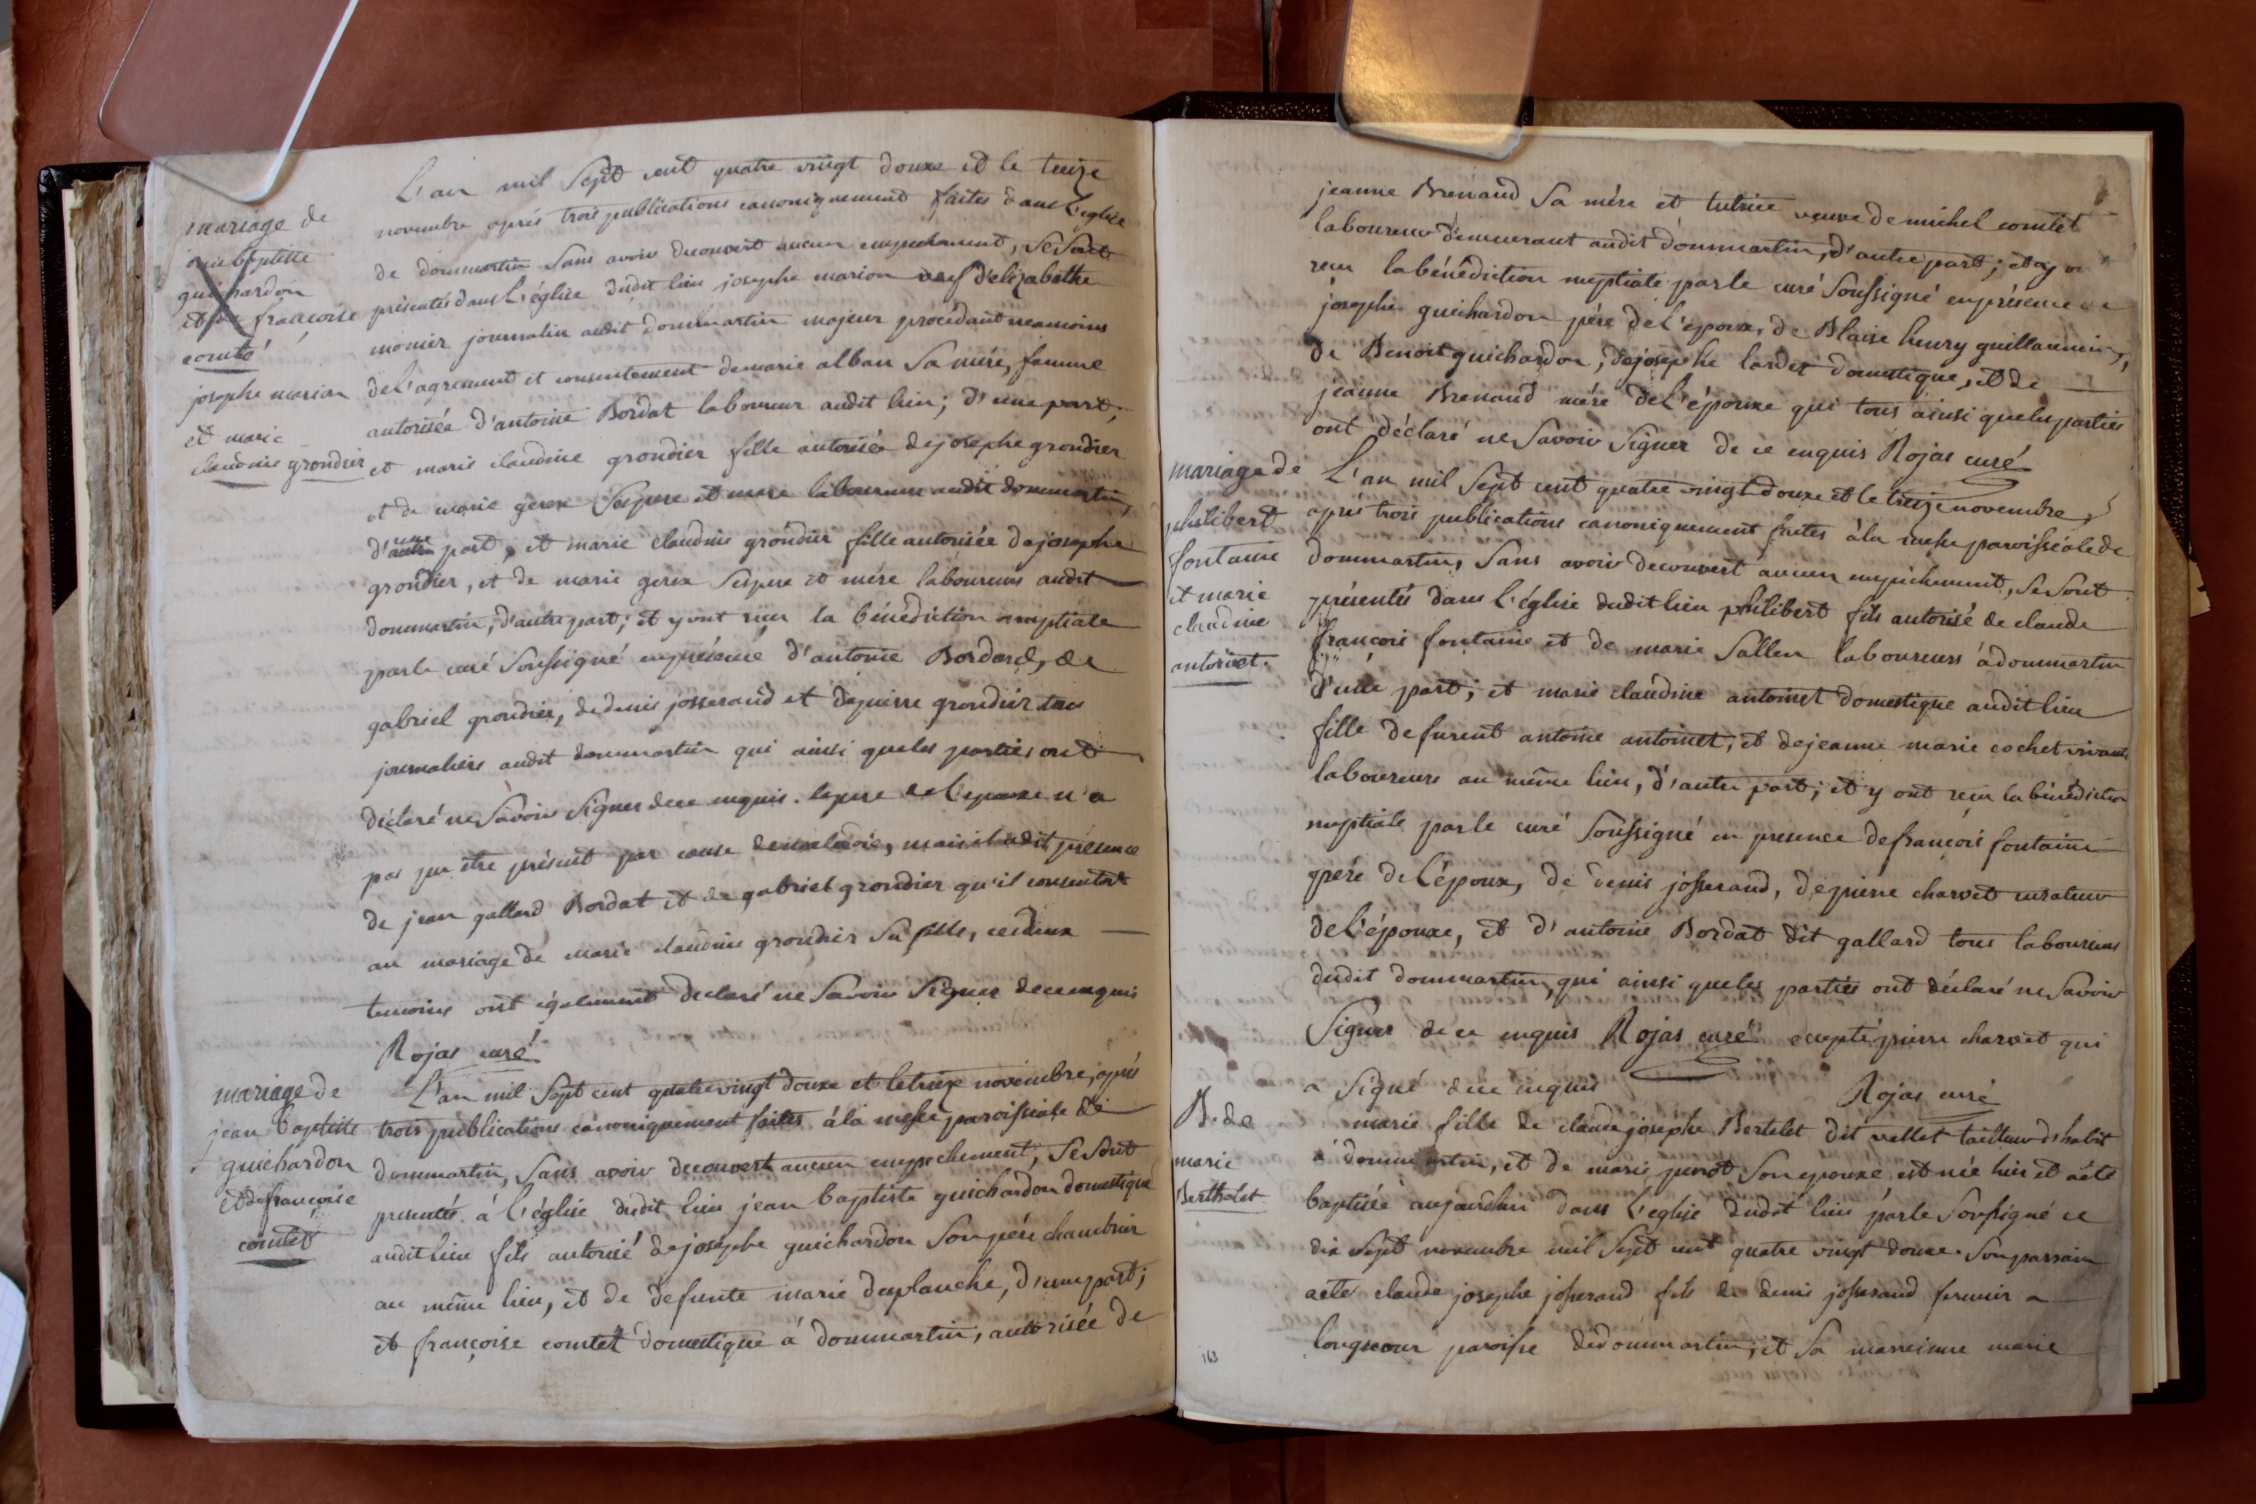 mariage de
jean baptiste
guichardon
et de françoise
comte
josephe marion
et marie
claudine grondier
L'an mil sept cent quatre vingt douze et le treize
novembre après trois publications canoniquement faites dans l'eglise
de dommartin sans avoir decouvert aucun empechement, se sont
présentés dans l'église dudit lieu josephe marion veuf d'elizabethe
monier journalier audit dommartin majeur procédant neamoins
de l'agrement et consentement de marie alban sa mére, femme
autorisée d'antoine Bordat laboureur audit lieu; d'une part;
et marie claudine grondier fille autorisée de josephe grondier
et de marie gerex ses pere et mere laboureurs audit dommartin,
d'une part, et marie claudine grondier fille autorisée de josephe
grondier, et de marie gerex ses pere et mére laboureurs audit
dommartin, d'autre part; et y ont reçu la bénédiction nuptiale
par le curé soussigné en présence d'antoine Bordard, de
gabriel grondier, de denis josserand et de pierre grondier tous
journaliers audit dommartin qui ainsi que les parties ont
déclaré ne savoir signer de ce enquis. le pere de l'epouse n'a
pas pu etre présent par cause de maladie, mais il a dit présence
de jean gallard Bordat et de gabriel grondier qu'il consentoit
au mariage de marie claudine grondier sa fille, ces deux
temoins ont également declaré ne savoir signer de ce enquis
Rojas curé
mariage de
jean baptiste
guichardon
et de françoise
comtet
L'an mil sept cent quatre vingt douze et le treize novembre, après
trois publications canoniquement faites à la messe paroissiale de
dommartin, sans avoir decouvert aucun empechement, se sont
presentés à l'église dudit lieu jean baptiste guichardon domestique
audit lieu fils autorisé de josephe guichardon son pére chambrier
au même lieu, et de defunte marie desplanche, d'une part;
et françoise comtet domestique à dommartin, autorisée de
jeanne Brenaud sa mére et tutrice veuve de michel comtet
laboureur demeurant audit dommartin, d'autre part; et y on
reçu la bénédiction nuptiale par le curé soussigné en présence de
josephe guichardon pére de l'époux, de Blaise henry guillaumin,
de Benoit guichardon, de josephe lardet domestique, et de
jeanne Brenaud mére de l'épouse qui tous ainsi que les parties
ont déclaré ne savoir signer de ce enquis Rojas curé
mariage de
philibert
fontaine
et marie
claudine
antoinet.
L'an mil sept cent quatre vingt douze et le treize novembre,
après trois publications canoniquement faites à la messe paroissiale de
dommartin, sans avoir decouvert aucun empêchement, se sont
présentés dans l'église dudit lieu philibert fils autorisé de claude
françois fontaine et de marie sallen laboureurs à dommartin
d'une part; et marie claudine antoinet domestique audit lieu
fille de furent antoine antoinet, et de jeanne marie cochet vivants
laboureurs au même lieu, d'autre part; et y ont reçu la bénédiction
nuptiale par le curé soussigné en presence de françois fontaine
pére de l'époux, de denis josserand, de pierre charvet curateur
de l'épouse, et d'antoine Bordat dit gallard tous laboureurs
dudit dommartin, qui ainsi que les parties ont déclaré ne savoir
signer de ce enquis Rojas curé excepté pierre charvet qui
a signé de ce enquis Rojas curé
B. de
marie
Berthelet
marie fille de claude josephe Bertelet dit vallet tailleur d'habit
à dommartin, et de marie perrot son epouse est née hier et a été
baptisée aujourdhui dans l'eglise dudit lieu par le soussigné ce
dix sept novembre mil sept cent quatre vingt douze. son parrain
a été claude josephe josserand fils de denis josserand fermier a
longecour paroisse de dommartin, et sa marreinne marie
163